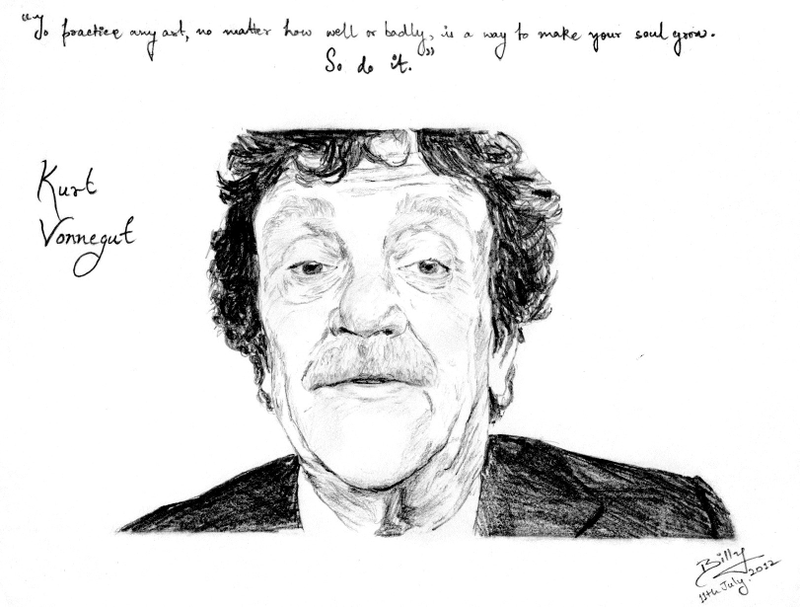 "To practice any art, no matter how well or badly, is a way to make your soul grow.
So do it."
Kurt
Vonnegut
Billy
11th July. 2012